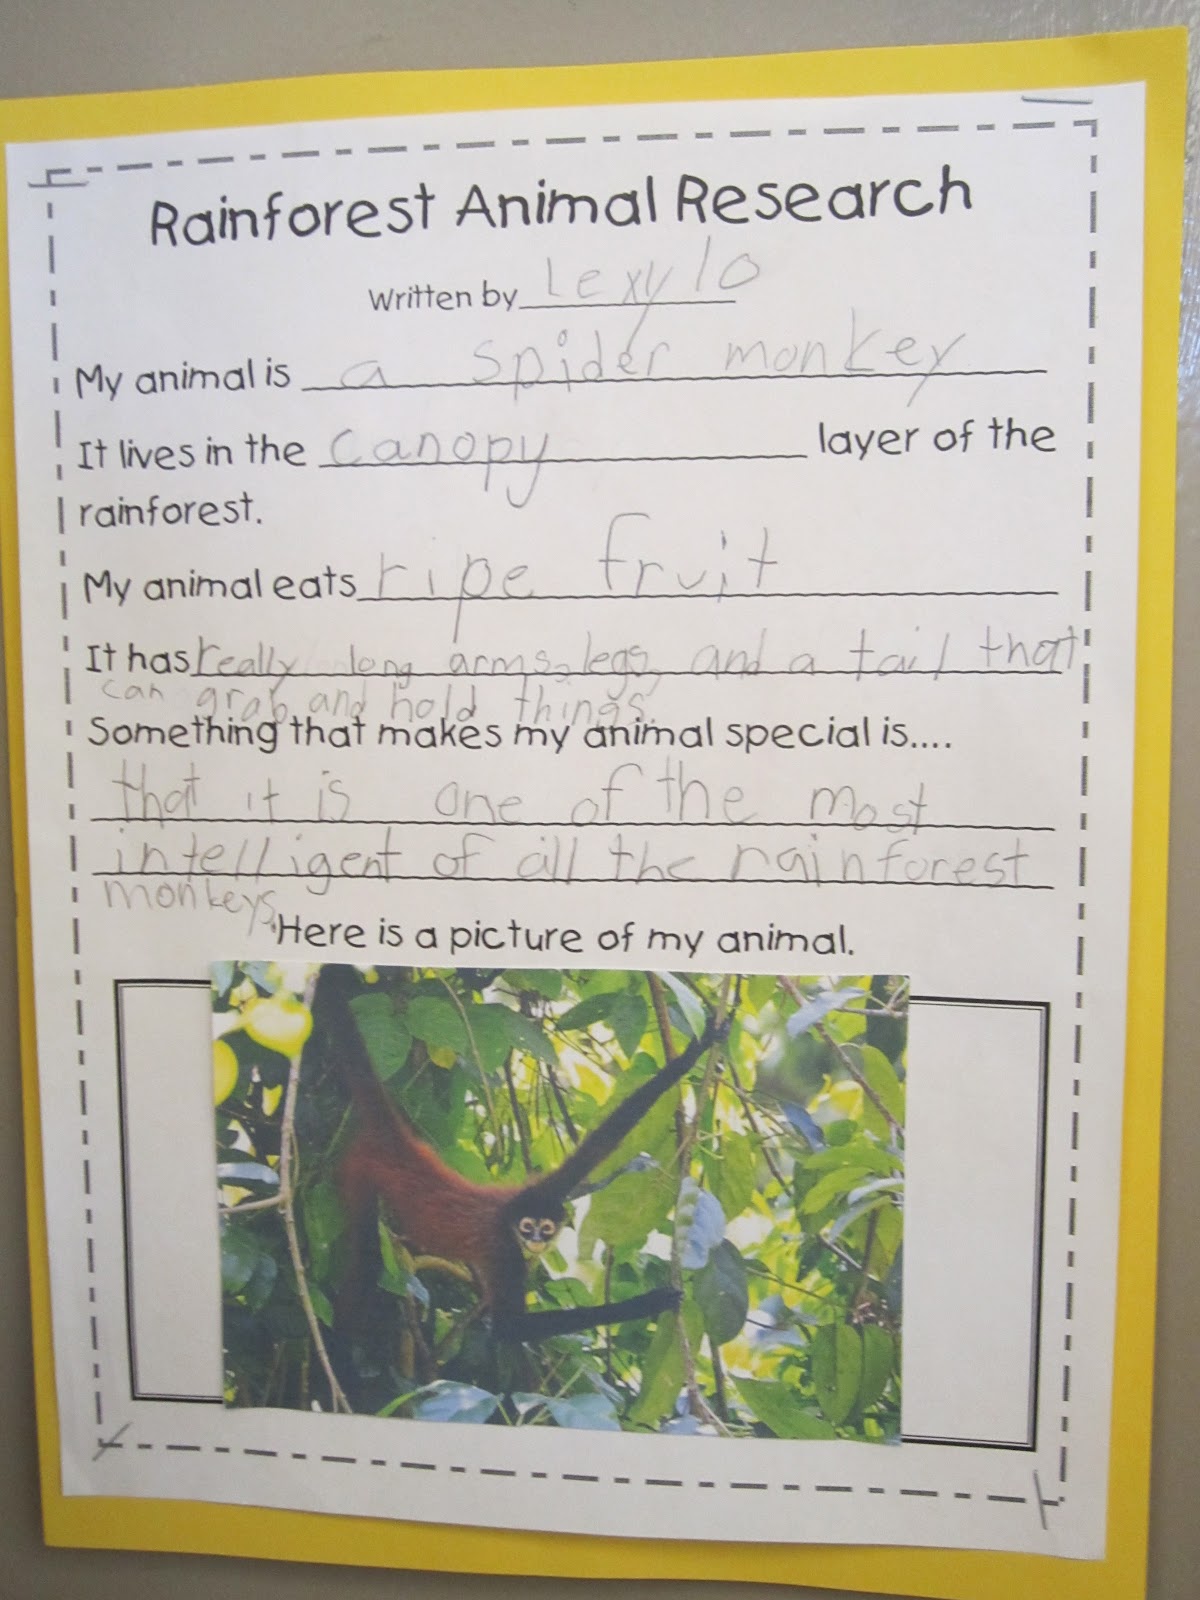 Rainforest Animal Research
Written by Lexy lo
My animal is a spider monkey
It lives in the canopy layer of the
rainforest.
My animal eats ripe fruit
It has really long arms, legs, and a tail that
can grab and hold things.
Something that makes my animal special is....
that it is one of the most
intelligent of all the rainforest
monkeys.
Here is a picture of my animal.